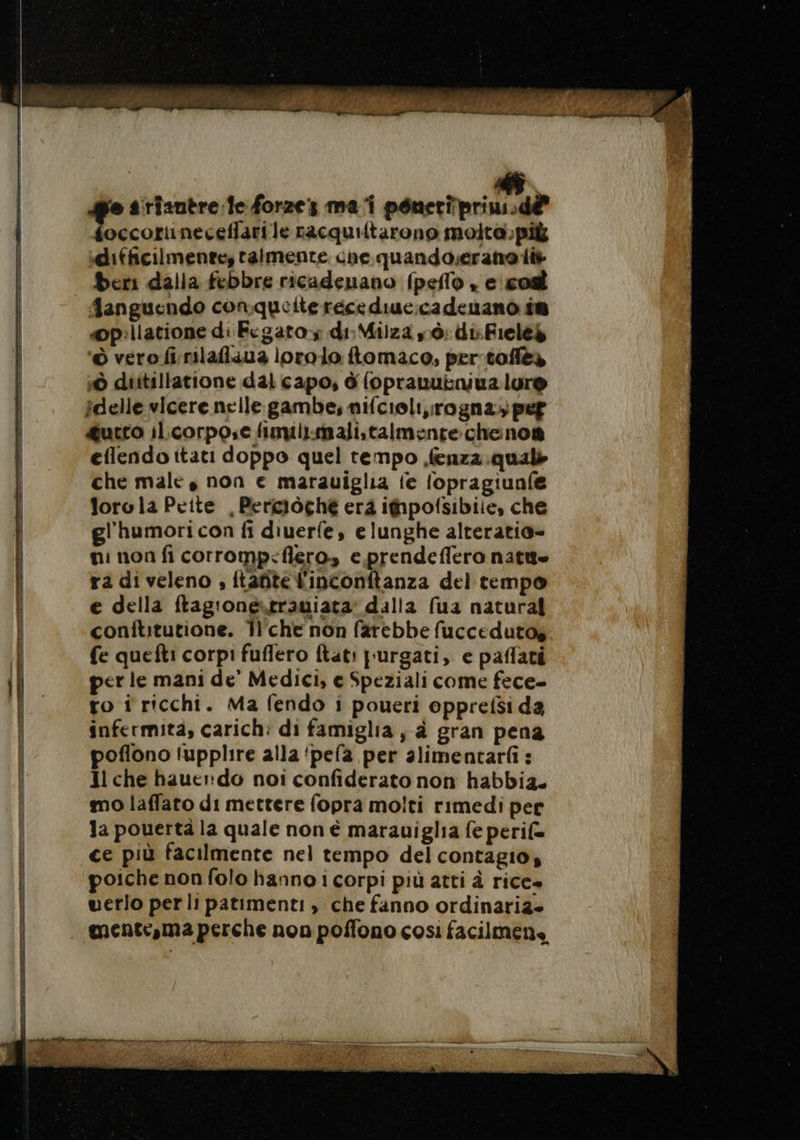 po a rihauere le forze; ma i poueri priui de
soccorsi necessari le racquistarono molto più
difficilmente, talmente che quando erano li-
beri dalla febbre ricadeuano spesso, e così
languendo con queste recediue cadeuano in
oppilatione di Fegato, di Milza, ò di Fiele,
ò vero si rilassaua loro lo stomaco, per tosse,
ò distillatione dal capo, ò soprauueniua loro
delle vlcere nelle gambe, niscioli, rogna, per
tutto il corpo, e simili mali, talmente che non
essendo stati doppo quel tempo senza qual-
che male, non e marauiglia se sopragiunse
loro la Peste. Perciòche era impossibile, che
gl'humori con si diuerse, e lunghe alteratio-
ni non si corrompessero, e prendessero natu-
ra di veleno, stante l'inconstanza del tempo
e della stagione trauiata dalla sua natural
constitutione. Il che non sarebbe succeduto,
se questi corpi fussero stati purgati, e passati
per le mani de' Medici, e Speziali come fece-
ro i ricchi. Ma sendo i poueri oppressi da
infermità, carichi di famiglia, à gran pena
possono supplire alla spesa per alimentarsi:
Il che hauendo noi considerato non habbia-
mo lassato di mettere sopra molti rimedi per
la pouertà la quale non é marauiglia se peris-
ce più facilmente nel tempo del contagio,
poiche non solo hanno i corpi più atti à rice-
uerlo per li patimenti, che fanno ordinaria-
mente, ma perche non possono cosi facilmen-